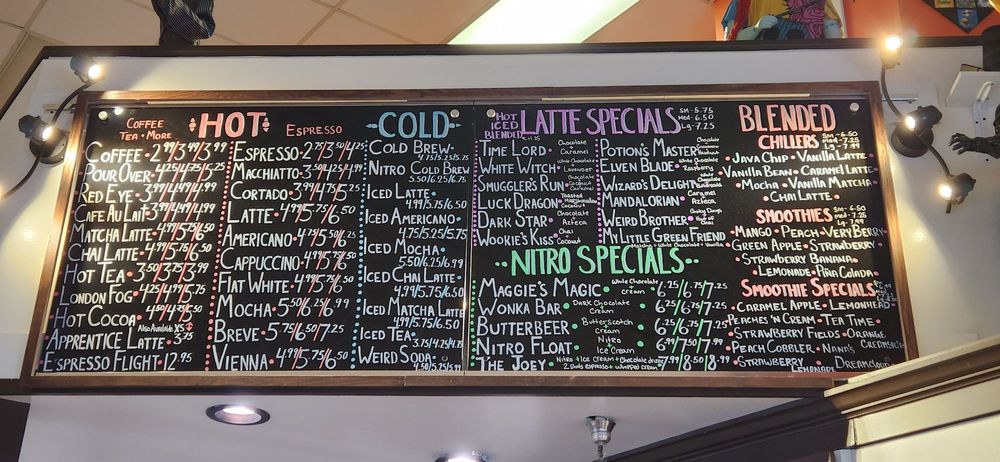 COFFEE
TEA + MORE
HOT
ESPRESSO
COFFEE • 2.99/3.49/3.99
POUR OVER • 4.25/4.75/5.25
RED EYE • 3.99/4.49/4.99
CAFE AU LAIT • 3.99/4.49/4.99
MATCHA LATTE • 4.99/5.75/6.50
CHAI LATTE • 4.99/5.75/6.50
HOT TEA • 3.50/3.75/3.99
LONDON FOG • 4.25/4.75/4.99
HOT COCOA
ALSO AVAILABLE XS
APPRENTICE LATTE • 3.75
ESPRESSO FLIGHT • 12.95
ESPRESSO • 2.75/3.50/4.25
MACCHIATO • 3.50/4.25
CORTADO • 3.99/4.75/5.25
LATTE • 4.99/5.75/6.50
AMERICANO • 4.75/5.25/5.75
CAPPUCCINO • 4.99/5.75/6.50
FLAT WHITE • 4.99/5.75/6.50
MOCHA • 5.50/6.25/6.99
BREVE • 5.75/6.50/7.25
VIENNA • 4.99/5.75/6.50
COLD
COLD BREW •
4.75/5.25/5.75
NITRO COLD BREW
5.50/6.25/6.75
ICED LATTE •
4.99/5.75/6.50
ICED AMERICANO •
4.75/5.25/5.75
ICED MOCHA •
5.50/6.25/6.99
ICED CHAI LATTE •
4.99/5.75/6.50
ICED MATCHA LATTE
4.99/5.75/6.50
ICED TEA •
3.75/4.25/4.75
WEIRD SODA •
4.50/5.25/5.99
HOT
ICED
BLENDED
LATTE SPECIALS
SM - 5.75
M - 6.50
LG - 7.25
TIME LORD • Chocolate Caramel
WHITE WITCH • White Chocolate Lavender
SMUGGLER'S RUN • Chocolate Coconut Caramel
LUCK DRAGON • Toasted Marshmallow Honey
DARK STAR • Chocolate Azteca
WOOKIE'S KISS • Chai Coconut
POTIONS MASTER
ELVEN BLADE • White Chocolate Raspberry
WIZARD'S DELIGHT
MANDALORIAN • Caramel Azteca
WEIRD BROTHER • Chai
MY LITTLE GREEN FRIEND
Matcha + White Chocolate + Vanilla
NITRO SPECIALS
MAGGIE'S MAGIC • White Chocolate Cream • 6.25/6.75/7.25
WONKA BAR • Dark Chocolate Cream • 6.25/6.75/7.25
BUTTERBEER • Butterscotch Cream • 6.25/6.75/7.25
NITRO FLOAT • Nitro + Ice Cream • 6.25/6.75/7.25
THE JOEY • Nitro + Ice Cream + Chocolate drizzle 2 shots espresso + whipped cream 7.99/8.50/8.99
BLENDED
CHILLERS
SM - 6.50
MED - 7.25
LG - 7.99
• JAVA CHIP • VANILLA LATTE •
VANILLA BEAN • CARAMEL LATTE
• MOCHA • VANILLA MATCHA
• CHAI LATTE •
SMOOTHIES
SM - 6.50
MED - 7.25
LG - 7.99
• MANGO • PEACH • VERY BERRY
GREEN APPLE • STRAWBERRY
STRAWBERRY BANANA
LEMONADE • PIÑA COLADA •
SMOOTHIE SPECIALS
• CARAMEL APPLE • LEMONHEAD
PEACHES 'N CREAM • TEA TIME •
STRAWBERRY FIELDS • ORANGE CREAMSICLE
PEACH COBBLER • NANA'S
• STRAWBERRY LEMONADE DREAMCLOUD